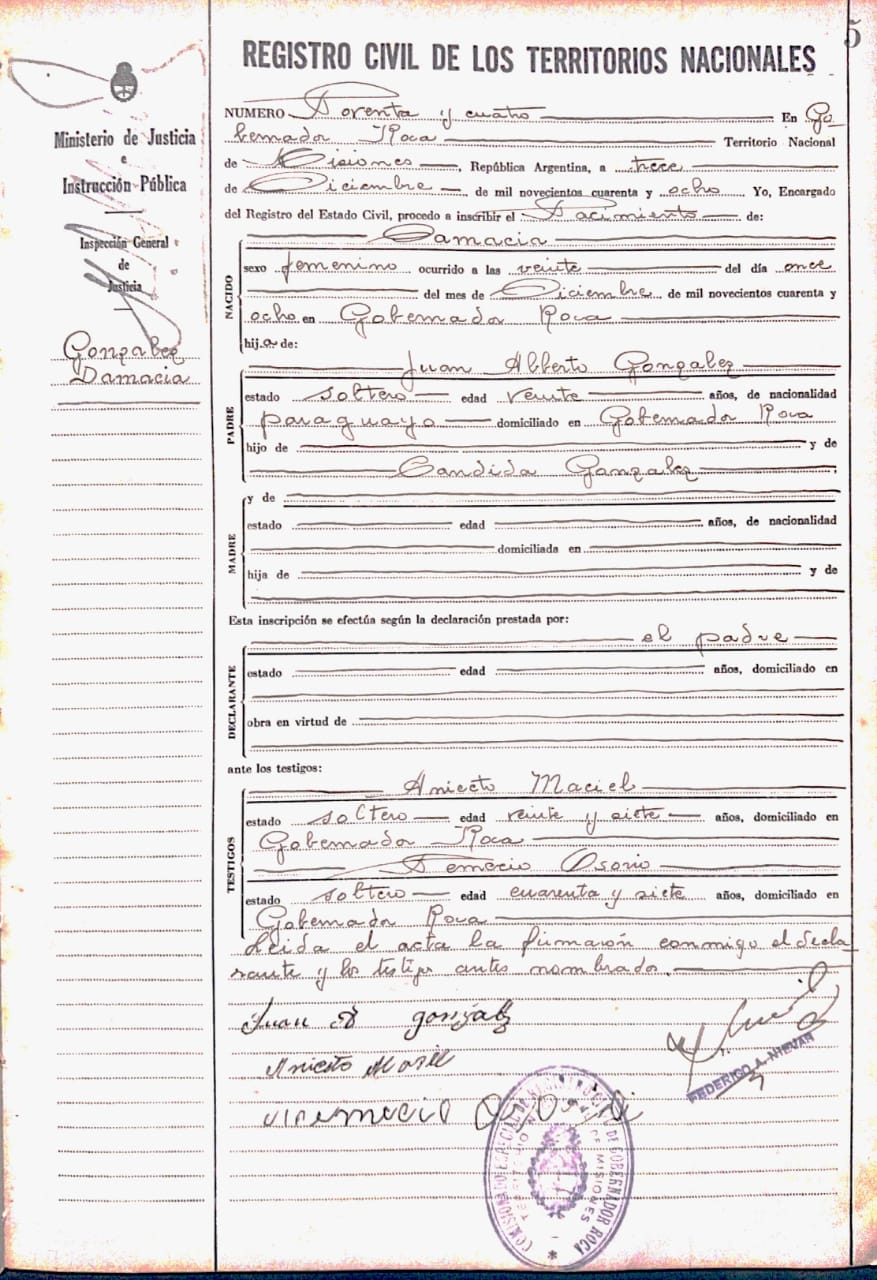 5
REGISTRO CIVIL DE LOS TERRITORIOS NACIONALES
Ministerio de Justicia
e
Instrucción Pública
Inspección General
de
Justicia
Gonzalez
Damacia
NUMERO Noventa y cuatro En Go-
bernador Roca Territorio Nacional
de Misiones, República Argentina, a trece
de Diciembre, de mil novecientos cuarenta y ocho Yo, Encargado
del Registro del Estado Civil, procedo a inscribir el Nacimiento de:
NACIDO
Damacia
sexo femenino ocurrido a las veinte del día once
del mes de Diciembre de mil novecientos cuarenta y
ocho en Gobernador Roca
hija de:
PADRE
Juan Alberto Gonzalez
estado soltero edad veinte años, de nacionalidad
paraguayo domiciliado en Gobernador Roca
hijo de y de
Candida Gonzalez
MADRE
y de
estado edad años, de nacionalidad
domiciliada en
hija de y de
Esta inscripción se efectúa según la declaración prestada por:
DECLARANTE
el padre
estado edad años, domiciliado en
obra en virtud de
ante los testigos:
TESTIGOS
Aniceto Maciel
estado soltero edad veinte y siete años, domiciliado en
Gobernador Roca
Nemecio Osorio
estado soltero edad cuarenta y siete años, domiciliado en
Gobernador Roca
Leida el acta la firmarón conmigo el decla-
rante y los testigos antes nombrados.
Juan A gonzalz
Aniceto
FEDERICO A.
REGISTRO CIVIL DE GOBERNADOR ROCA
DE MISIONES